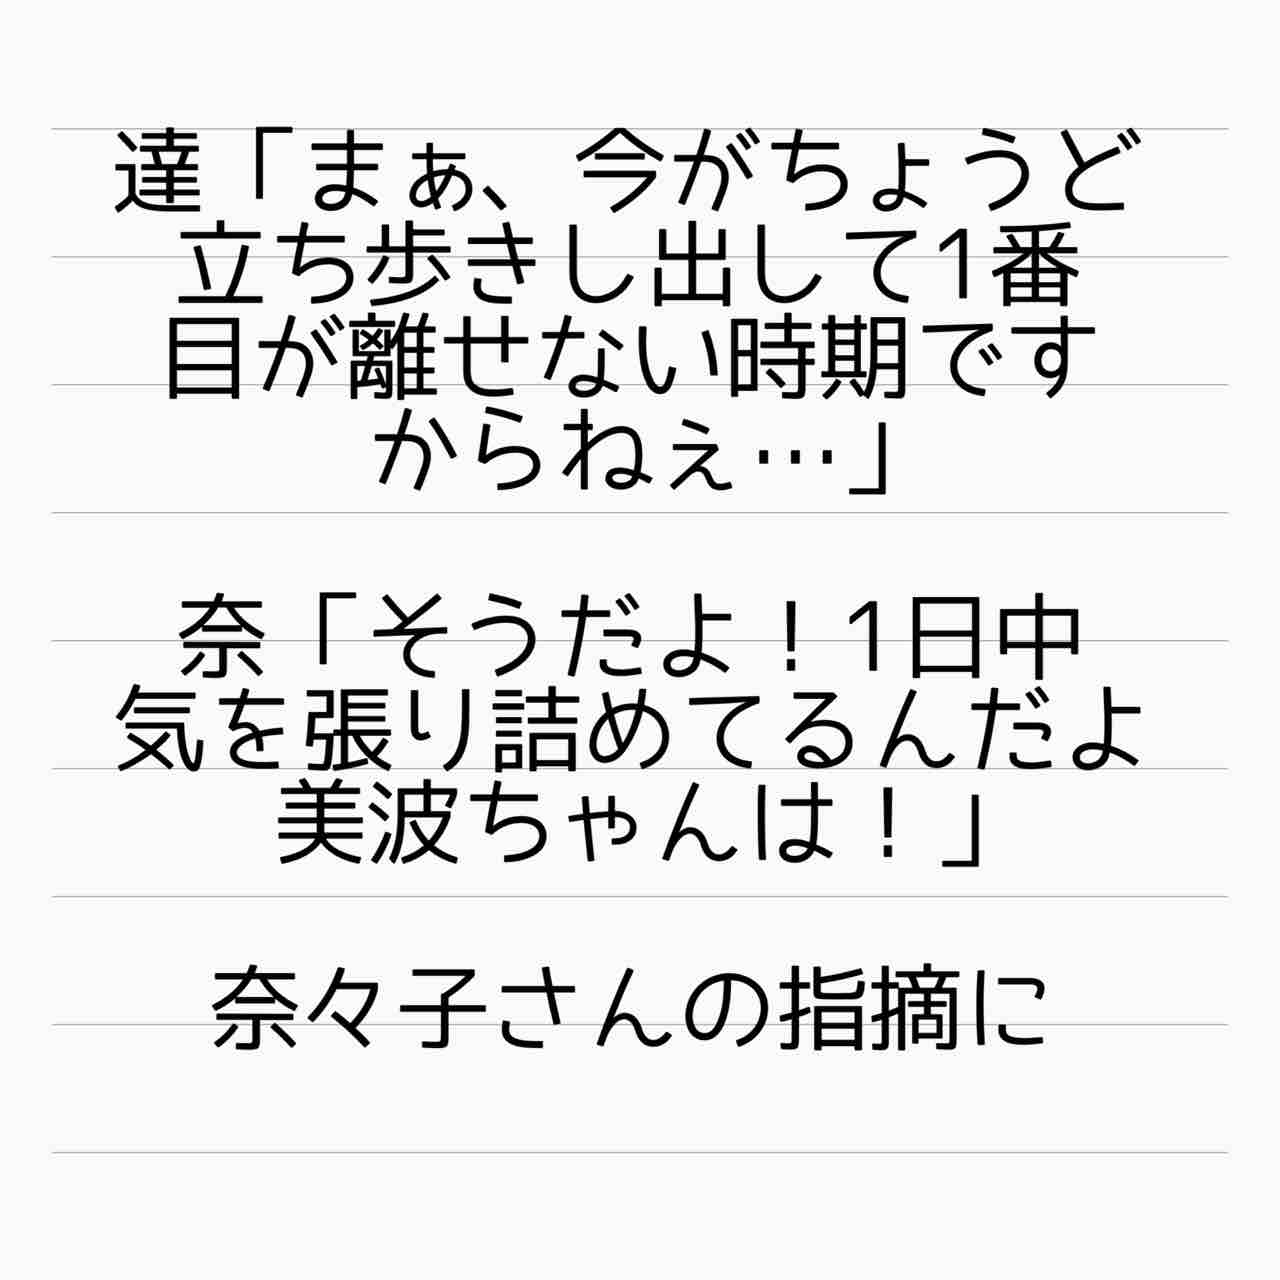 達「まぁ、今がちょうど
立ち歩きし出して1番
目が離せない時期です
からねぇ…」
奈「そうだよ！1日中
気を張り詰めてるんだよ
美波ちゃんは！」
奈々子さんの指摘に